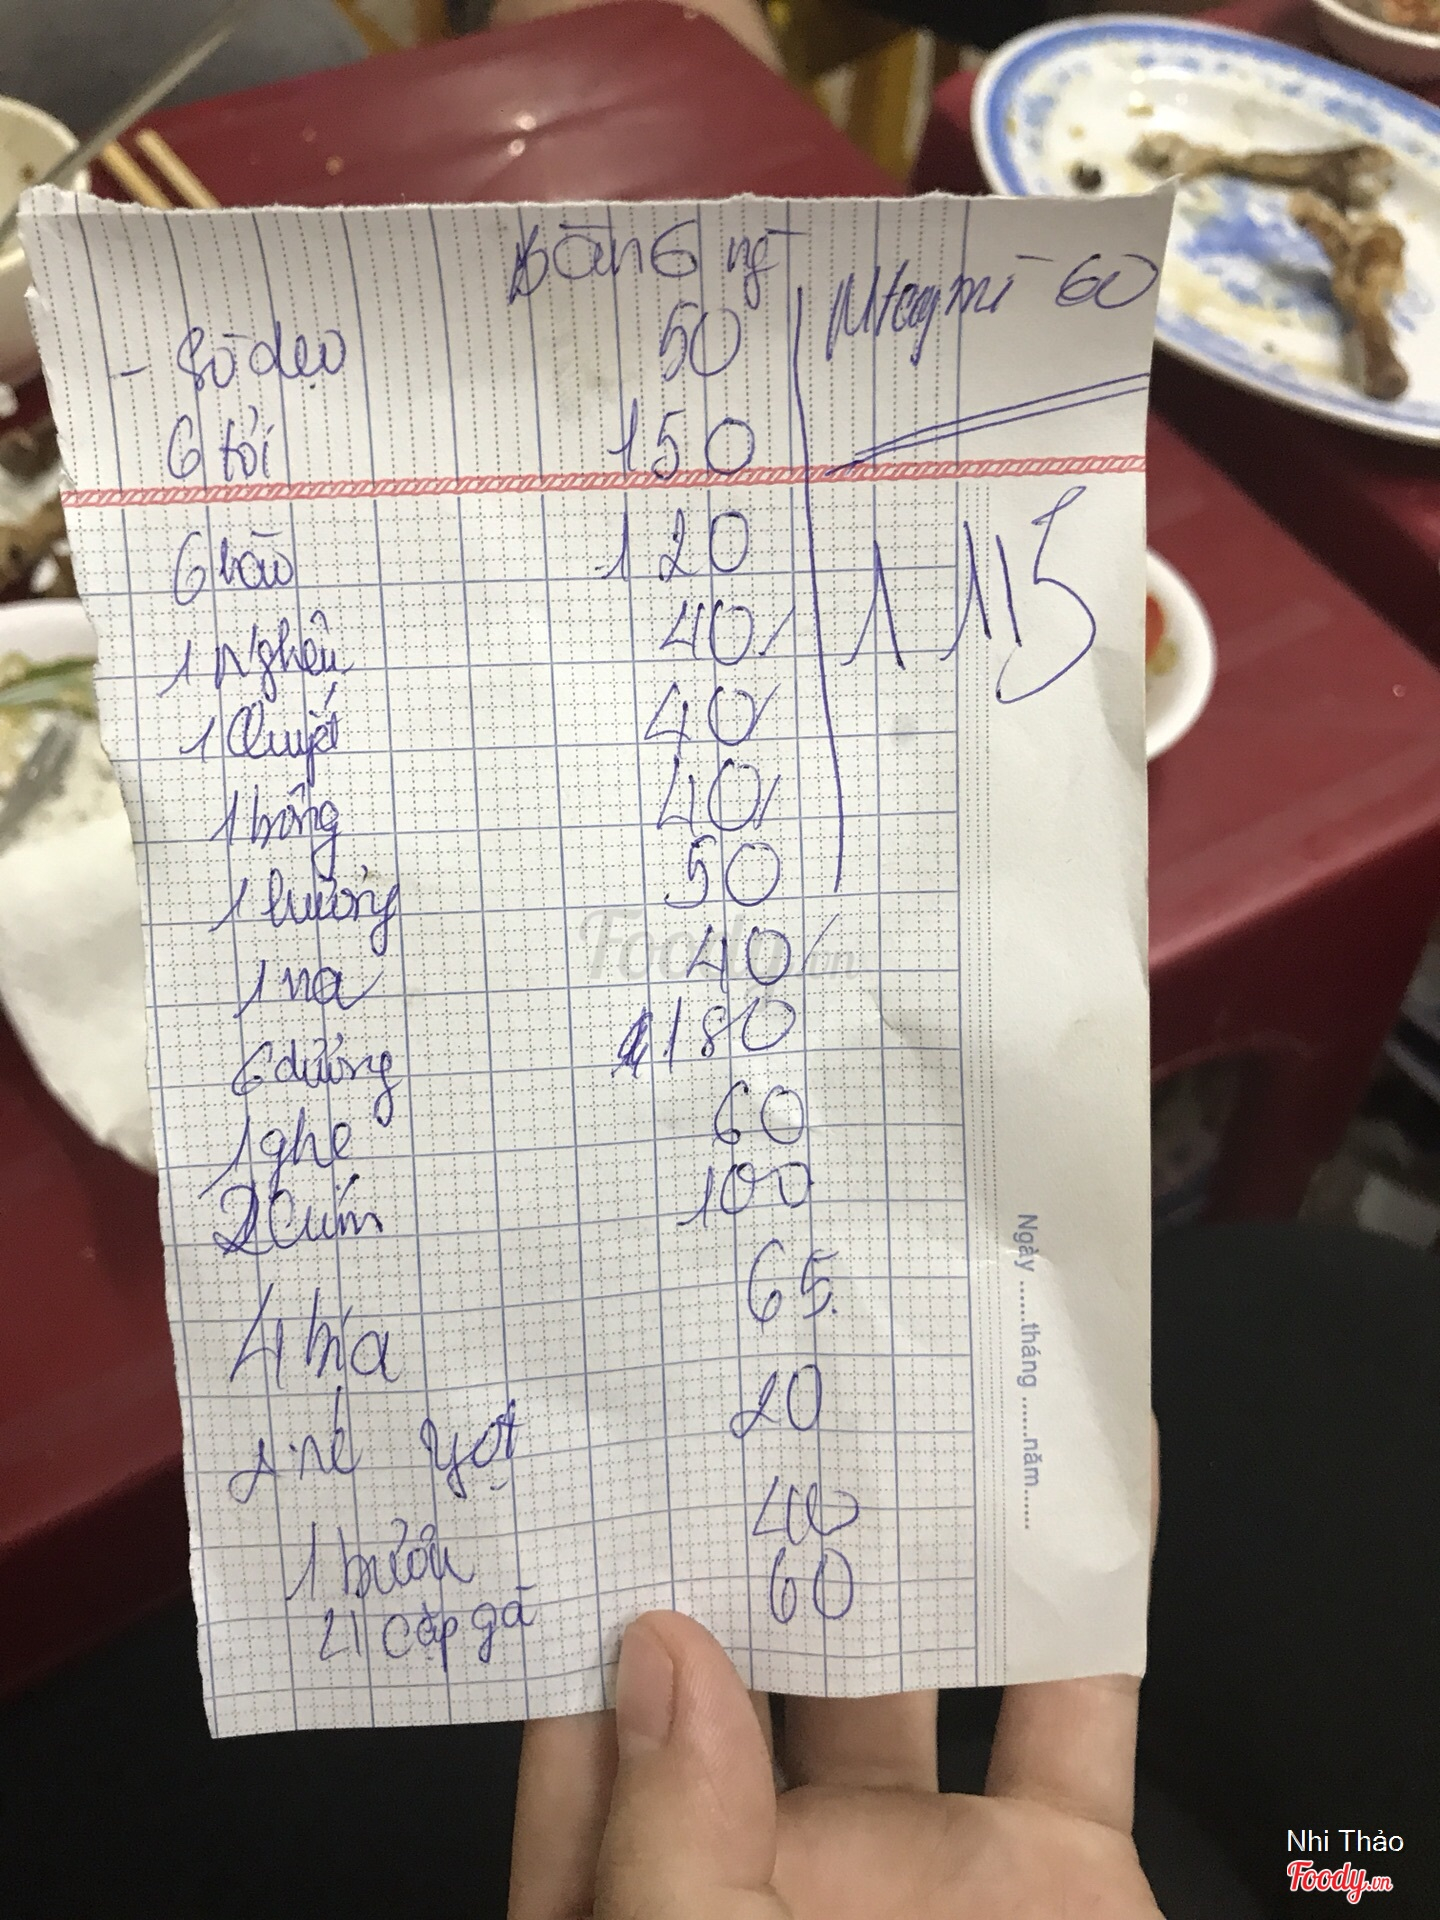 bàn 6 ng
- Sò dẹo 50
6 tỏi 150
6 hào 120
1 Nghêu 40
1 Quyết 40
1 bông 40
1 hương 50
1 na 40
6 dương 180
1 ghẹ 60
2 Cúm 100
4 bia 65
20
1 bươu 40
2 cặp gà 60
mì 60
1 115
Ngày ......tháng ......năm......
Foody.vn
Nhi Thảo
Foody.vn